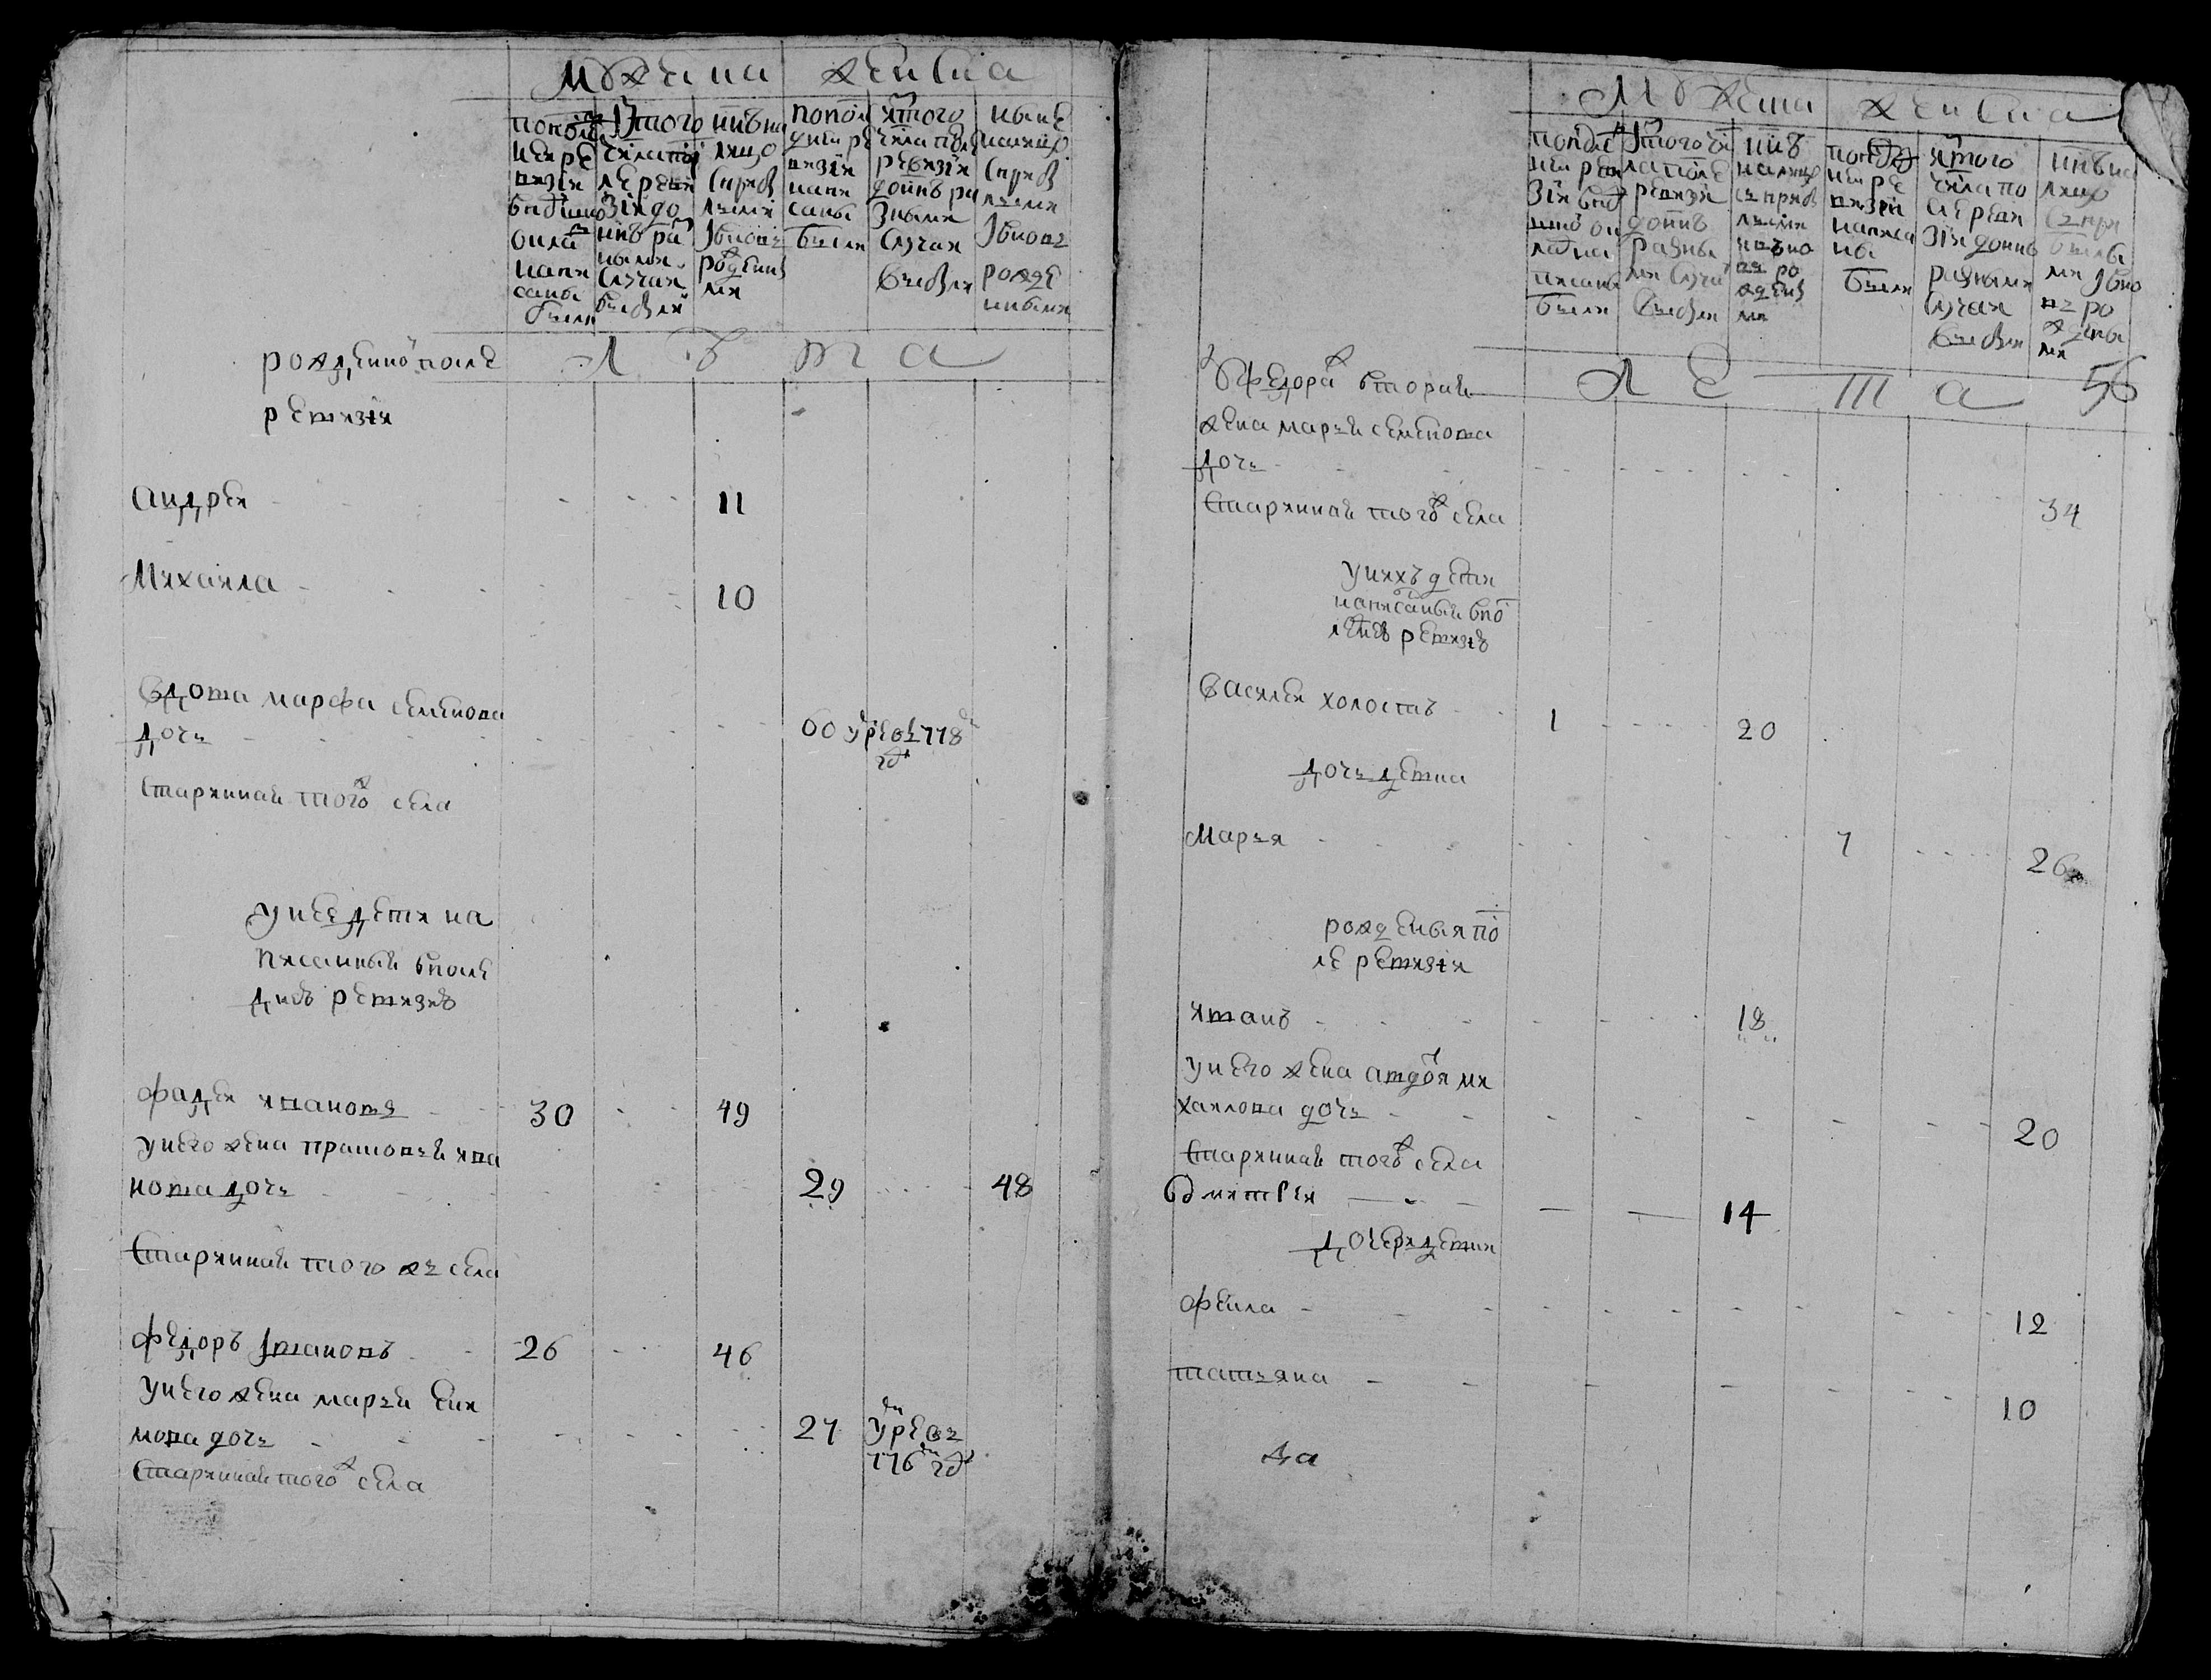 Мужеска
женска
попосле
ней ре
визiи
в подушно
окла
напи
саны
были
Iзтого
числапос
ле реви
зiидо
нне ра
ными
случаи
выбыли
нне на
лицо
спрiбы
лыми
Iвновь
рожденны
ми
попосле
дней ре
визiи
напи
саны
были
изтого
числа после
ревизiи
донне ра
зными
случаи
выбыли
ныне
налицо
сприб
лыми
Iвновь
рожде
нными
Л Ѣ т а
рожденно после
ревизiи
андреи 11
Михаила 10
Вдова марфа семенова
дочь 60 умре въ 778м
году
старинная тогож села
у нее дети на
писанныя впосле
дней ревизiе
фадеи ивановъ 30 49
унего жена прасковья ива
нова дочь 29 48
Старинная того жъ села
федоръ Iвановъ 26 46
унего жена марья еки
мова дочь 27 умре въ
776м году
Старинная того ж села
Мужеска
женска
после
ней реви
зiи впо
душно ок
лад на
писаны
были
Iзтого чи
ла после
ревизiи
до нне
разны
ми случаи
выбыли
нне
налицо
съ приб
лыми
ивно
вь ро
жденны
ми
попосле
ней ре
визiи
написа
ны
были
изтого
числа по
сле реви
зiи донне
разными
случаи
выбыли
нне на
лицо
съ при
былы
ми Iвно
вь ро
ждены
ми
Л Е Т а 56
У федора ж вторая
жена марья семенова
дочь
Старинная тогож села 34
унихъ дети
написаныя впо
следней ревизiе
Василеи холостъ 1 20
дочь девка
Марья 7 26
рожденыя по
сле ревизiи
иванъ 18
у него жена авдотя ми
хаилова дочь 20
Старинная тогож села
дмитреи 14
дочери девки
фекла 12
татьяна 10
да